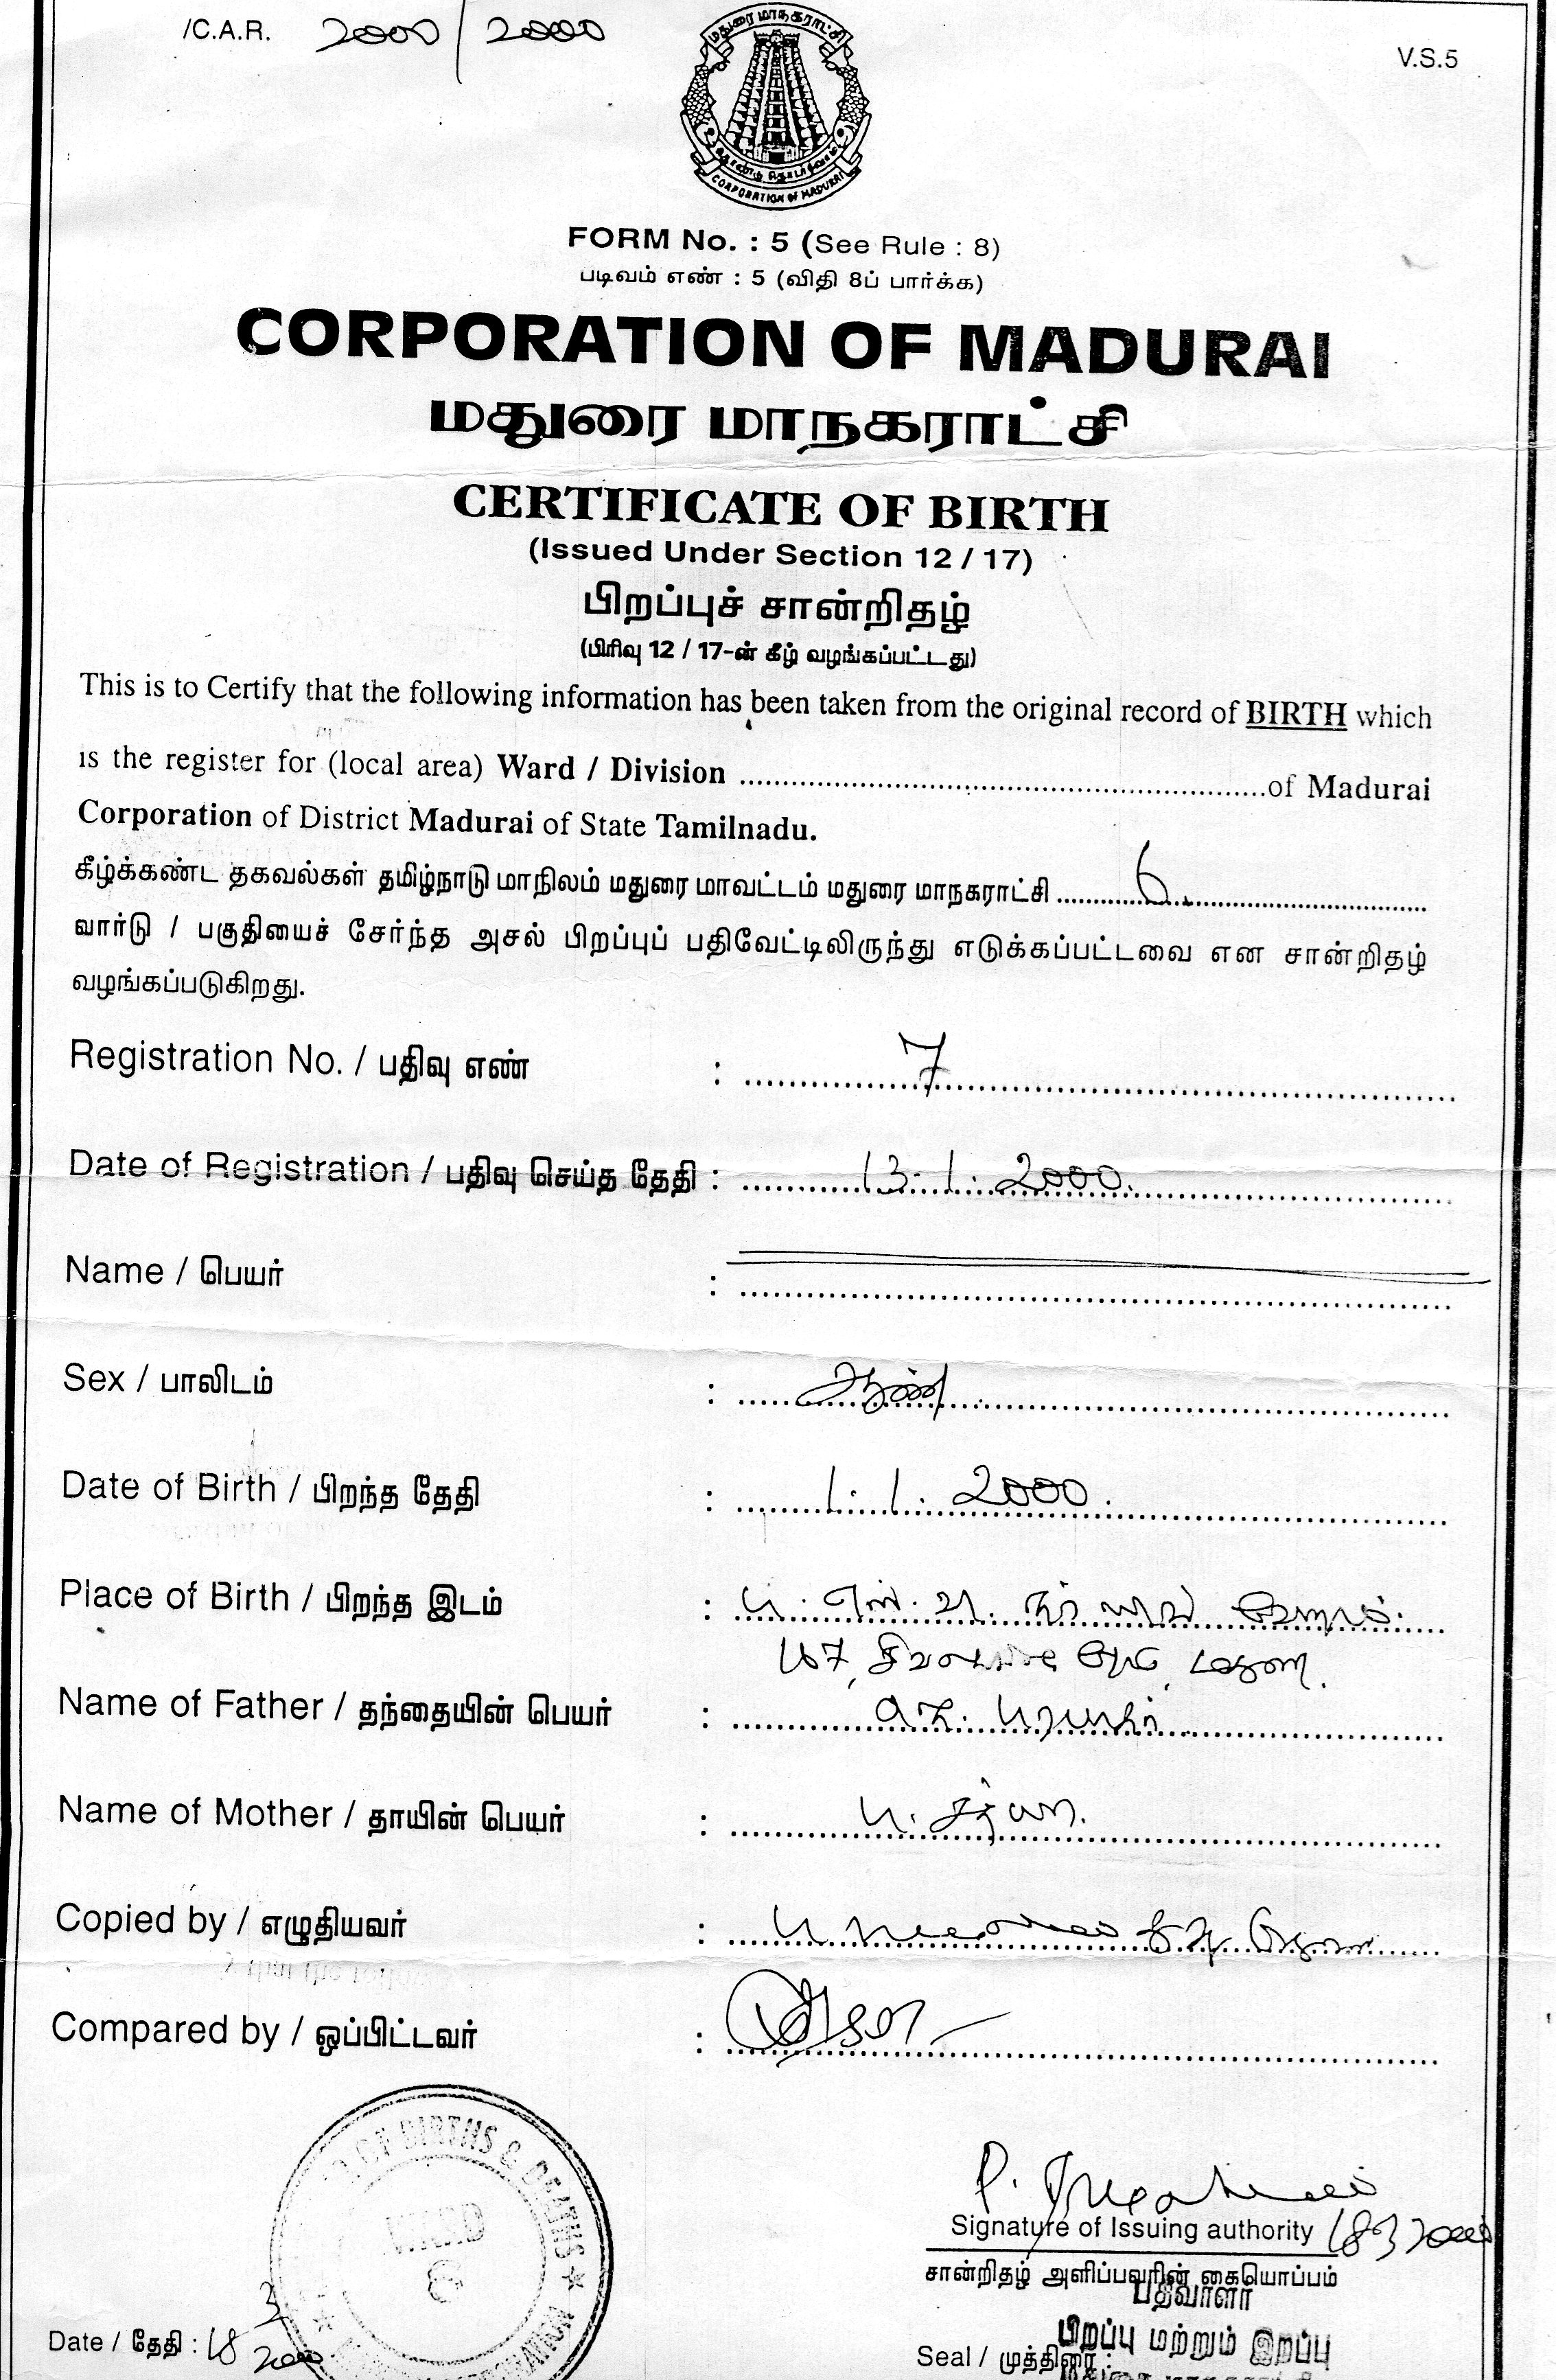 /C.A.R. 2000/2000
V.S.5
மதுரை மாநகராட்சி
CORPORATION OF MADURAI
FORM No. : 5 (See Rule : 8)
படிவம் எண் : 5 (விதி 8ப் பார்க்க)
CORPORATION OF MADURAI
மதுரை மாநகராட்சி
CERTIFICATE OF BIRTH
(Issued Under Section 12 / 17)
பிறப்புச் சான்றிதழ்
(பிரிவு 12 / 17-ன் கீழ் வழங்கப்பட்டது)
This is to Certify that the following information has been taken from the original record of BIRTH which
is the register for (local area) Ward / Division ............................................................of Madurai
Corporation of District Madurai of State Tamilnadu.
கீழ்க்கண்ட தகவல்கள் தமிழ்நாடு மாநிலம் மதுரை மாவட்டம் மதுரை மாநகராட்சி ............6............
வார்டு / பகுதியைச் சேர்ந்த அசல் பிறப்புப் பதிவேட்டிலிருந்து எடுக்கப்பட்டவை என சான்றிதழ்
வழங்கப்படுகிறது.
Registration No. / பதிவு எண் : 7
Date of Registration / பதிவு செய்த தேதி : 13.1.2000.
Name / பெயர் :
Sex / பாலிடம் : ஆண்
Date of Birth / பிறந்த தேதி : 1.1.2000.
Place of Birth / பிறந்த இடம் : பி. எஸ்.
167,
Name of Father / தந்தையின் பெயர் :
Name of Mother / தாயின் பெயர் : ப. சத்யா.
Copied by / எழுதியவர் :
Compared by / ஒப்பிட்டவர் :
OF BIRTHS & DEATHS
WARD
6
CORPORATION
P.
Signature of Issuing authority 18/3/2000
சான்றிதழ் அளிப்பவரின் கையொப்பம்
பதிவாளர்
பிறப்பு மற்றும் இறப்பு
Date / தேதி : 18/3/2000
Seal / முத்திரை :